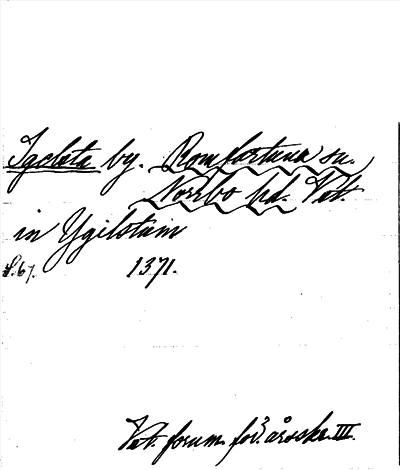 Igelsta by. Romfartuna sn.
Norrbo hd. Vstm.
in Ygilstum
s. 67. 1371.
Vst. fornm. för. årsskr. III.